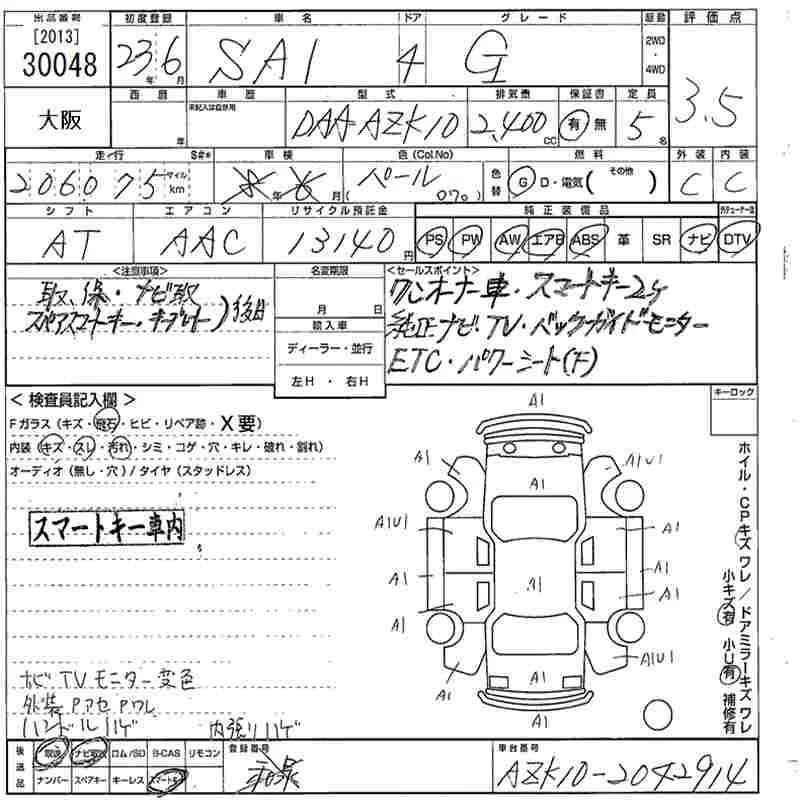 出品番号 初度登録 車名 ドア グレード 駆動 評価点
[2013]
30048 23年6月 SAI 4 G 2WD・4WD 3.5
大阪 西暦 年 車歴 未記入は自家用 型式 DAA-AZK10 排気量 2,400cc 保証書 有 無 定員 5名
走行 S#* 車検 色(Col.No) 色替 燃料 外装 内装
206075 マイル km 8年6月 パール (070) G D・電気 (その他) C C
シフト エアコン リサイクル預託金 純正装備品
AT AAC 13140円 PS PW AW エアB ABS 革 SR ナビ DTV
<注意事項> 名変期限 <セールスポイント>
取、保・ナビ取 月 日 ワンオーナー車・スマートキー2ケ
スペアスマートキー・キープレート)後日 輸入車 純正ナビ・TV・バックガイドモニター
ディーラー・並行 ETC・パワーシート(F)
左H・右H
<検査員記入欄> キーロック
Fガラス(キズ・飛石・ヒビ・リペア跡・X要)
内装(キズ・スレ・汚れ・シミ・コゲ・穴・キレ・破れ・割れ)
オーディオ(無し・穴)/タイヤ(スタッドレス)
スマートキー車内
A1
A1 A1U1
A1
A1U1 A1
A1 A1 A1
A1
A1
A1 A1U1
ホイル・CPキズ ワレ/ドアミラーキズ ワレ
小キズ有 小U有 補修有
ナビTVモニター変色
外装Pアセ Pワレ
ハンドルハゲ 内張りハゲ
後送品 取説 ナビ取説 ロム/SD B-CAS リモコン 登録番号 車台番号
ナンバー スペアキー キーレス スマートキー AZK10-2042914